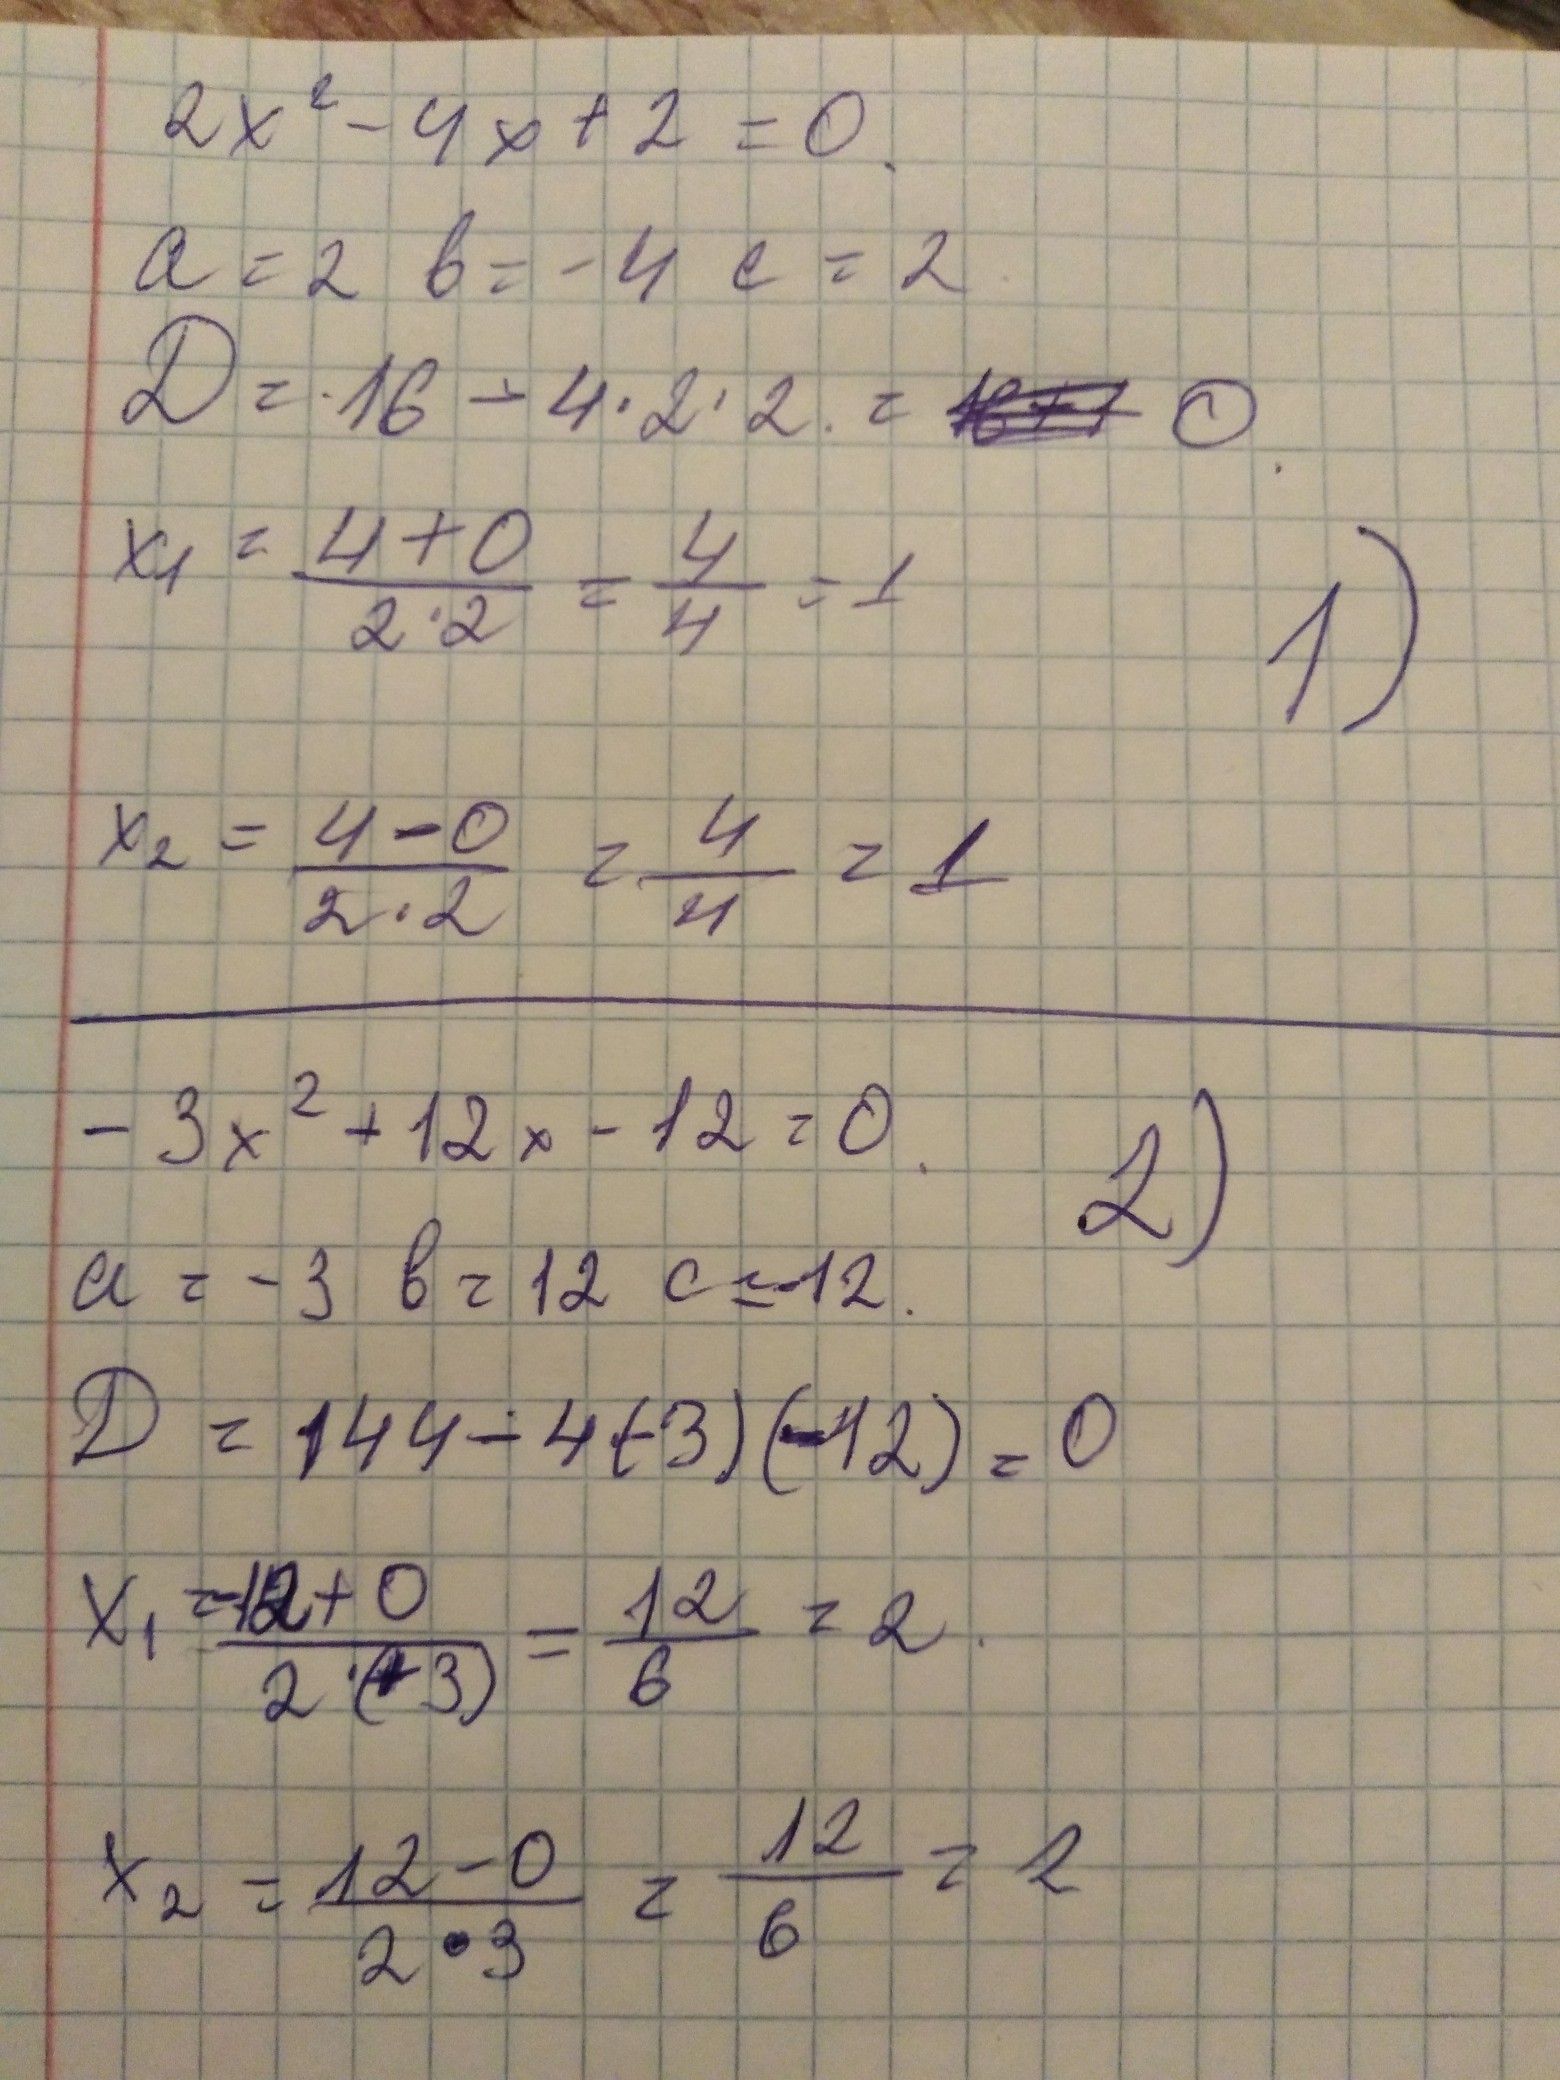 2x² - 4x + 2 = 0.
a = 2 в = -4 c = 2
D = 16 - 4·2·2. = 0.
x₁ = (4+0)/(2·2) = 4/4 = 1
1)
x₂ = (4-0)/(2·2) = 4/4 = 1
-3x² + 12x - 12 = 0.
2)
a = -3 в = 12 c = -12.
D = 144 - 4(-3)(-12) = 0
x₁ = (-12+0)/(2·(-3)) = 12/6 = 2.
x₂ = (12-0)/(2·3) = 12/6 = 2